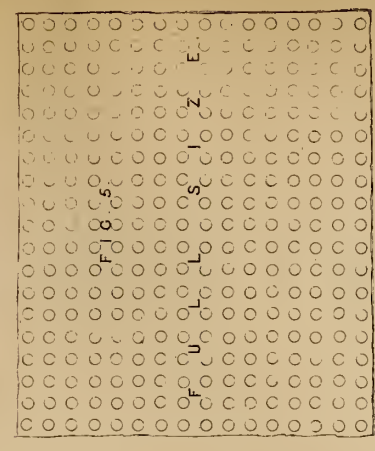 FIG. 5
FULL SIZE